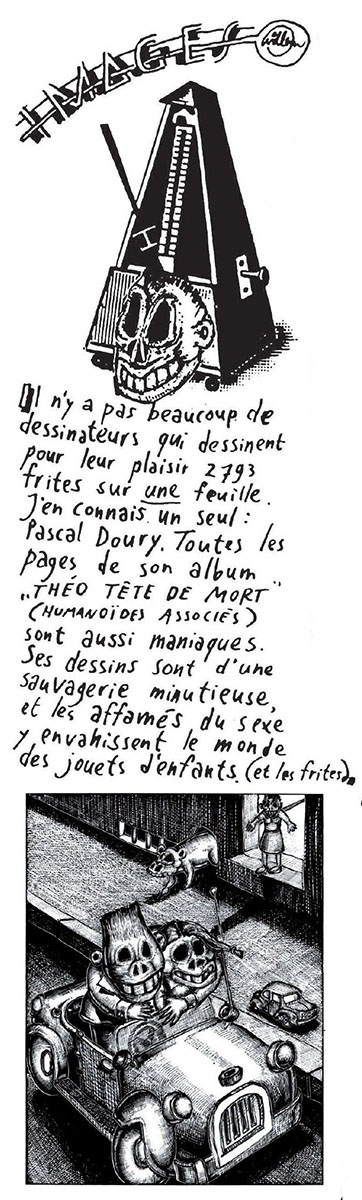 IMAGES
willem
Il n'y a pas beaucoup de
dessinateurs qui dessinent
pour leur plaisir 2793
frites sur une feuille.
J'en connais un seul :
Pascal Doury. Toutes les
pages de son album
„THÉO TÊTE DE MORT"
(HUMANOÏDES ASSOCIÉS)
sont aussi maniaques.
Ses dessins sont d'une
sauvagerie minutieuse,
et les affamés du sexe
y envahissent le monde
des jouets d'enfants. (et les frites).